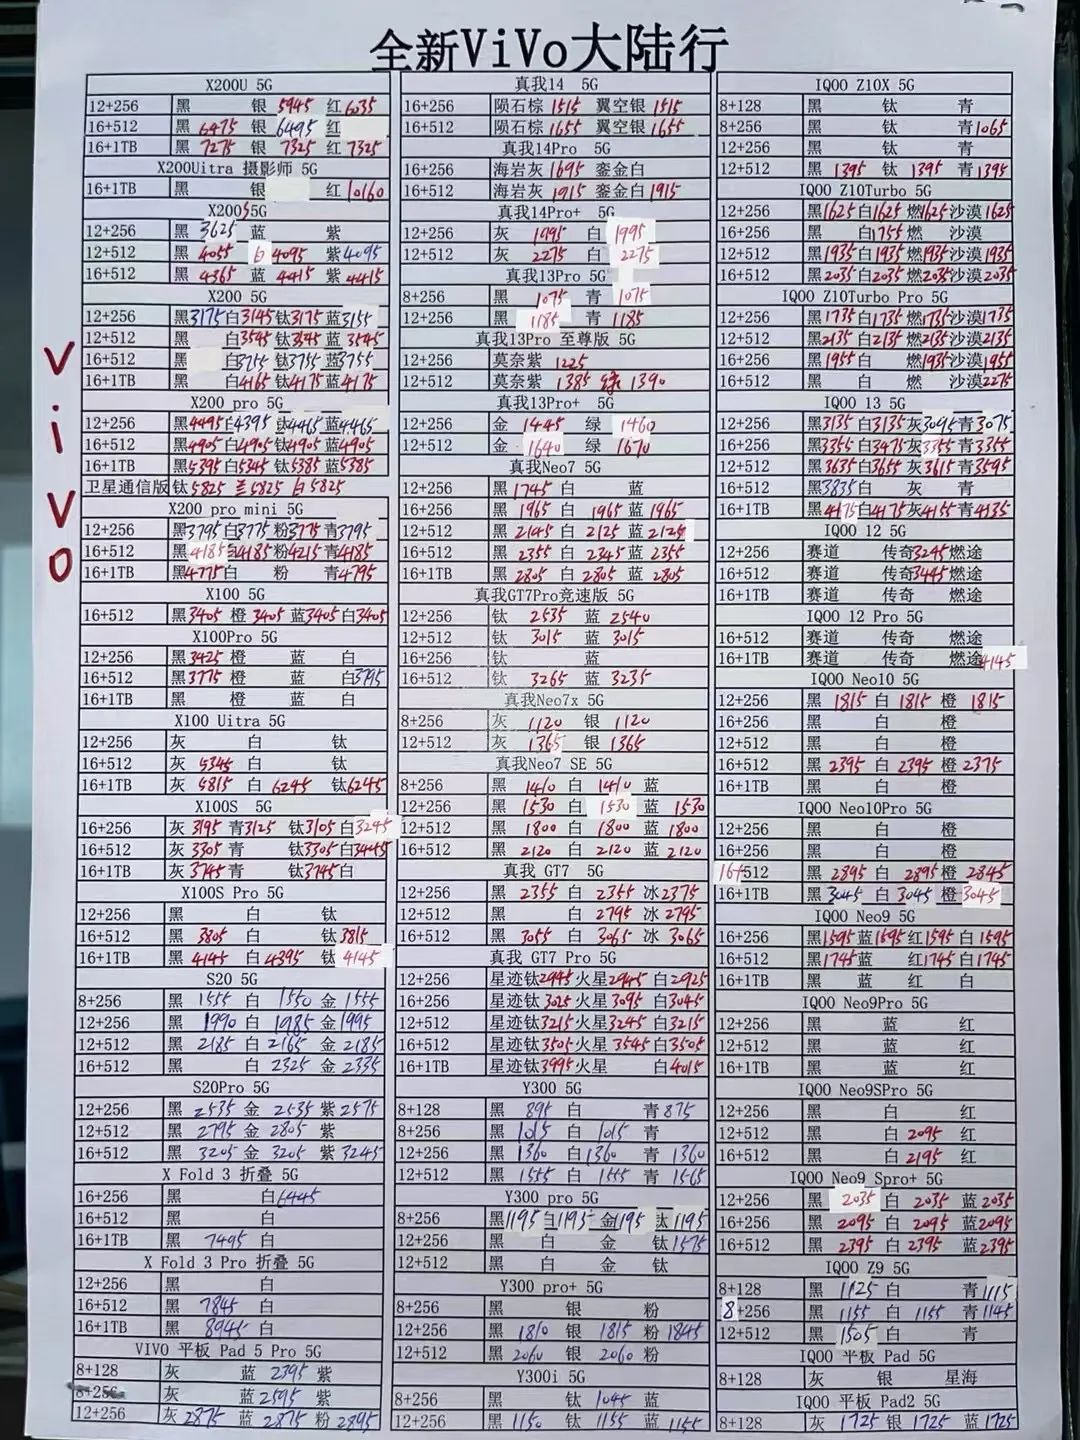 全新ViVo大陆行
V
i
V
o
X200U 5G
12+256 黑 银 5945 红 6035
16+512 黑 6475 银 6495 红
16+1TB 黑 7275 银 7325 红 7325
X200Uitra 摄影师 5G
16+1TB 黑 银 红 10160
X200S5G
12+256 黑 3625 蓝 紫
12+512 黑 4055 白 4095 紫 4095
16+512 黑 4365 蓝 4415 紫 4415
X200 5G
12+256 黑3175 白3145 钛3175 蓝3155
12+512 黑 白3595 钛3595 蓝3545
16+512 黑 白3755 钛3755 蓝3755
16+1TB 黑 白4165 钛4175 蓝4175
X200 pro 5G
12+256 黑4495 白4395 钛4465 蓝4465
16+512 黑4905 白4905 钛4905 蓝4905
16+1TB 黑5395 白5345 钛5385 蓝5385
卫星通信版 钛 5825 兰 5825 白 5825
X200 pro mini 5G
12+256 黑3795 白3775 粉3775 青3795
16+512 黑4185 4185 粉4215 青4185
16+1TB 黑4775 白 粉 青4795
X100 5G
16+512 黑3405 橙 3405 蓝3405 白3405
X100Pro 5G
12+256 黑3425 橙 蓝 白
16+512 黑3775 橙 蓝 白3795
16+1TB 黑 橙 蓝 白
X100 Uitra 5G
12+256 灰 白 钛
16+512 灰 5345 白 钛
16+1TB 灰 5815 白 6245 钛6245
X100S 5G
16+256 灰 3195 青3125 钛3105 白3245
16+512 灰 3305 青 钛3305 白3445
16+1TB 灰 3745 青 钛3745 白
X100S Pro 5G
12+256 黑 白 钛
16+512 黑 3805 白 钛3815
16+1TB 黑 4145 白 4395 钛 4145
S20 5G
8+256 黑 1555 白 1550 金 1555
12+256 黑 1990 白 1985 金 1995
12+512 黑 2185 白 2165 金 2185
16+512 黑 白 2325 金 2335
S20Pro 5G
12+256 黑 2535 金 2535 紫 2575
12+512 黑 2795 金 2805 紫
16+512 黑 3205 金 3205 紫 3245
X Fold 3 折叠 5G
16+256 黑 白6445
16+512 黑 白
16+1TB 黑 7495 白
X Fold 3 Pro 折叠 5G
12+256 黑 白
16+512 黑 7845 白
16+1TB 黑 8945 白
VIVO 平板 Pad 5 Pro 5G
8+128 灰 蓝 2395 紫
8+256 灰 蓝 2595 紫
12+256 灰 2875 蓝 2875 粉 2895
真我14 5G
16+256 陨石棕 1515 翼空银 1515
16+512 陨石棕 1655 翼空银 1655
真我14Pro 5G
16+256 海岩灰 1695 銮金白
16+512 海岩灰 1915 銮金白 1915
真我14Pro+ 5G
12+256 灰 1995 白 1995
12+512 灰 2275 白 2275
真我13Pro 5G
8+256 黑 1075 青 1075
12+256 黑 1185 青 1185
真我13Pro 至尊版 5G
12+256 莫奈紫 1225
12+512 莫奈紫 1385 绿 1390
真我13Pro+ 5G
12+256 金 1445 绿 1460
12+512 金 1640 绿 1670
真我Neo7 5G
12+256 黑 1745 白 蓝
16+256 黑 1965 白 1965 蓝 1965
12+512 黑 2145 白 2125 蓝 2125
16+512 黑 2355 白 2345 蓝 2355
16+1TB 黑 2805 白 2805 蓝 2805
真我GT7Pro竞速版 5G
12+256 钛 2535 蓝 2540
12+512 钛 3015 蓝 3015
16+256 钛 蓝
16+512 钛 3265 蓝 3235
真我Neo7x 5G
8+256 灰 1120 银 1120
12+512 灰 1365 银 1365
真我Neo7 SE 5G
8+256 黑 1410 白 1410 蓝
12+256 黑 1530 白 1530 蓝 1530
12+512 黑 1800 白 1800 蓝 1800
16+512 黑 2120 白 2120 蓝 2120
真我 GT7 5G
12+256 黑 2355 白 2355 冰 2375
12+512 黑 白 2795 冰 2795
16+512 黑 3055 白 3065 冰 3065
真我 GT7 Pro 5G
12+256 星迹钛2945 火星2945 白2925
16+256 星迹钛 3025 火星 3095 白3045
12+512 星迹钛3215 火星3245 白3215
16+512 星迹钛3505 火星 3545 白3505
16+1TB 星迹钛3995 火星 白4015
Y300 5G
8+128 黑 895 白 青 875
8+256 黑 1015 白 1015 青
12+256 黑 1360 白1360 青 1360
12+512 黑 1555 白 1555 青 1565
Y300 pro 5G
8+256 黑1195 白1195 金1195 钛1195
12+256 黑 白 金 钛1575
12+512 黑 白 金 钛
Y300 pro+ 5G
8+256 黑 银 粉
12+256 黑 1810 银 1815 粉 1845
12+512 黑 2060 银 2060 粉
Y300i 5G
8+256 黑 钛 1045 蓝
12+256 黑 1150 钛 1155 蓝 1155
IQOO Z10X 5G
8+128 黑 钛 青
8+256 黑 钛 青1065
12+256 黑 钛 青
12+512 黑 1395 钛 1395 青1395
IQOO Z10Turbo 5G
12+256 黑1625 白1625 燃1625 沙漠1625
16+256 黑 白1755 燃 沙漠
12+512 黑1935 白1935 燃1935 沙漠1935
16+512 黑2035 白2035 燃2035 沙漠2035
IQOO Z10Turbo Pro 5G
12+256 黑1735 白1735 燃1735 沙漠1735
12+512 黑2135 白2135 燃2135 沙漠2135
16+256 黑1955 白 燃1935 沙漠1955
16+512 黑 白 燃 沙漠2275
IQOO 13 5G
12+256 黑3135 白3135 灰3095 青3075
16+256 黑3355 白3475 灰3355 青3355
12+512 黑3635 白3655 灰3615 青3595
16+512 黑3835 白 灰 青
16+1TB 黑4175 白4175 灰4155 青4135
IQOO 12 5G
12+256 赛道 传奇3245 燃途
16+512 赛道 传奇3445 燃途
16+1TB 赛道 传奇 燃途
IQOO 12 Pro 5G
16+512 赛道 传奇 燃途
16+1TB 赛道 传奇 燃途4145
IQOO Neo10 5G
12+256 黑 1815 白 1815 橙 1815
16+256 黑 白 橙
12+512 黑 白 橙
16+512 黑 2395 白 2395 橙 2375
16+1TB 黑 白 橙
IQOO Neo10Pro 5G
12+256 黑 白 橙
16+256 黑 白 橙
16+512 黑 2895 白 2895 橙 2845
16+1TB 黑 3045 白 3045 橙 3045
IQOO Neo9 5G
16+256 黑1595 蓝1595 红1595 白1595
16+512 黑1745 蓝 红1745 白1745
16+1TB 黑 蓝 红 白
IQOO Neo9Pro 5G
12+256 黑 蓝 红
12+512 黑 蓝 红
16+1TB 黑 蓝 红
IQOO Neo9SPro 5G
12+256 黑 白 红
12+512 黑 白 2095 红
16+512 黑 白 2195 红
IQOO Neo9 Spro+ 5G
12+256 黑 2035 白 2035 蓝2035
16+256 黑 2095 白 2095 蓝2095
16+512 黑 2395 白 2395 蓝2395
IQOO Z9 5G
8+128 黑 1125 白 青1115
8+256 黑 1155 白 1155 青1145
12+512 黑 1505 白 青
IQOO 平板 Pad 5G
8+128 灰 银 星海
IQOO 平板 Pad2 5G
8+128 灰 1725 银 1725 蓝1725